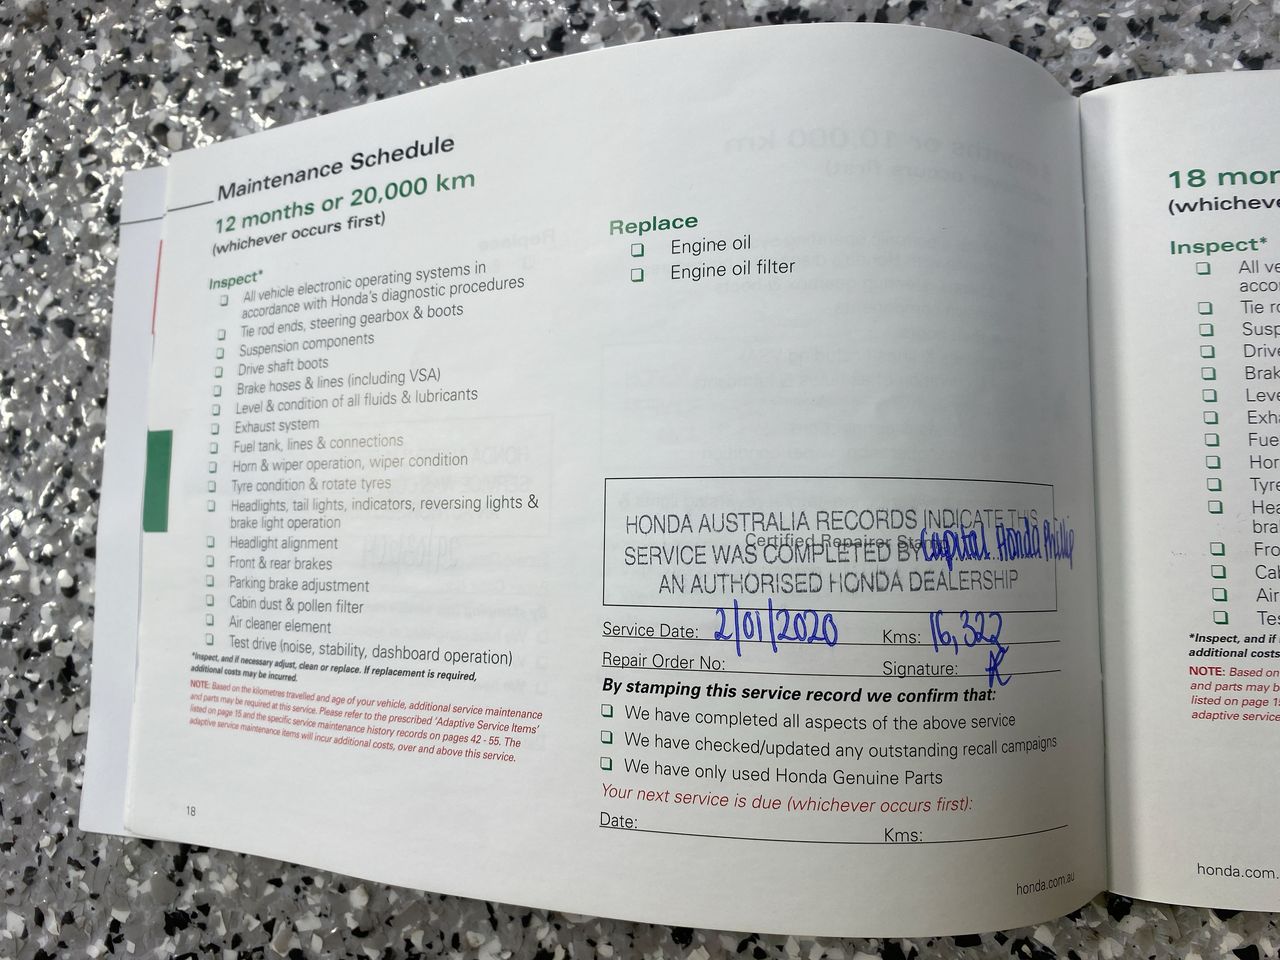 Maintenance Schedule
12 months or 20,000 km
(whichever occurs first)
Inspect*
All vehicle electronic operating systems in
accordance with Honda's diagnostic procedures
Tie rod ends, steering gearbox & boots
Suspension components
Drive shaft boots
Brake hoses & lines (including VSA)
Level & condition of all fluids & lubricants
Exhaust system
Fuel tank, lines & connections
Horn & wiper operation, wiper condition
Tyre condition & rotate tyres
Headlights, tail lights, indicators, reversing lights &
brake light operation
Headlight alignment
Front & rear brakes
Parking brake adjustment
Cabin dust & pollen filter
Air cleaner element
Test drive (noise, stability, dashboard operation)
*Inspect, and if necessary adjust, clean or replace. If replacement is required,
additional costs may be incurred.
NOTE: Based on the kilometres travelled and age of your vehicle, additional service maintenance
and parts may be required at this service. Please refer to the prescribed 'Adaptive Service Items'
listed on page 15 and the specific service maintenance history records on pages 42 - 55. The
adaptive service maintenance items will incur additional costs, over and above this service.
18
Replace
Engine oil
Engine oil filter
HONDA AUSTRALIA RECORDS INDICATE THIS
Certified Repairer Stamp
SERVICE WAS COMPLETED BY Capital Honda Phillip
AN AUTHORISED HONDA DEALERSHIP
Service Date: 2/01/2020 Kms: 16,322
Repair Order No: Signature:
By stamping this service record we confirm that:
We have completed all aspects of the above service
We have checked/updated any outstanding recall campaigns
We have only used Honda Genuine Parts
Your next service is due (whichever occurs first):
Date: Kms:
honda.com.au
18 mon
(whicheve
Inspect*
All ve
accor
Tie ro
Susp
Drive
Brak
Leve
Exha
Fue
Hor
Tyre
Hea
bra
Fro
Cab
Air
Tes
*Inspect, and if
additional costs
NOTE: Based on
and parts may b
listed on page 15
adaptive service
honda.com.